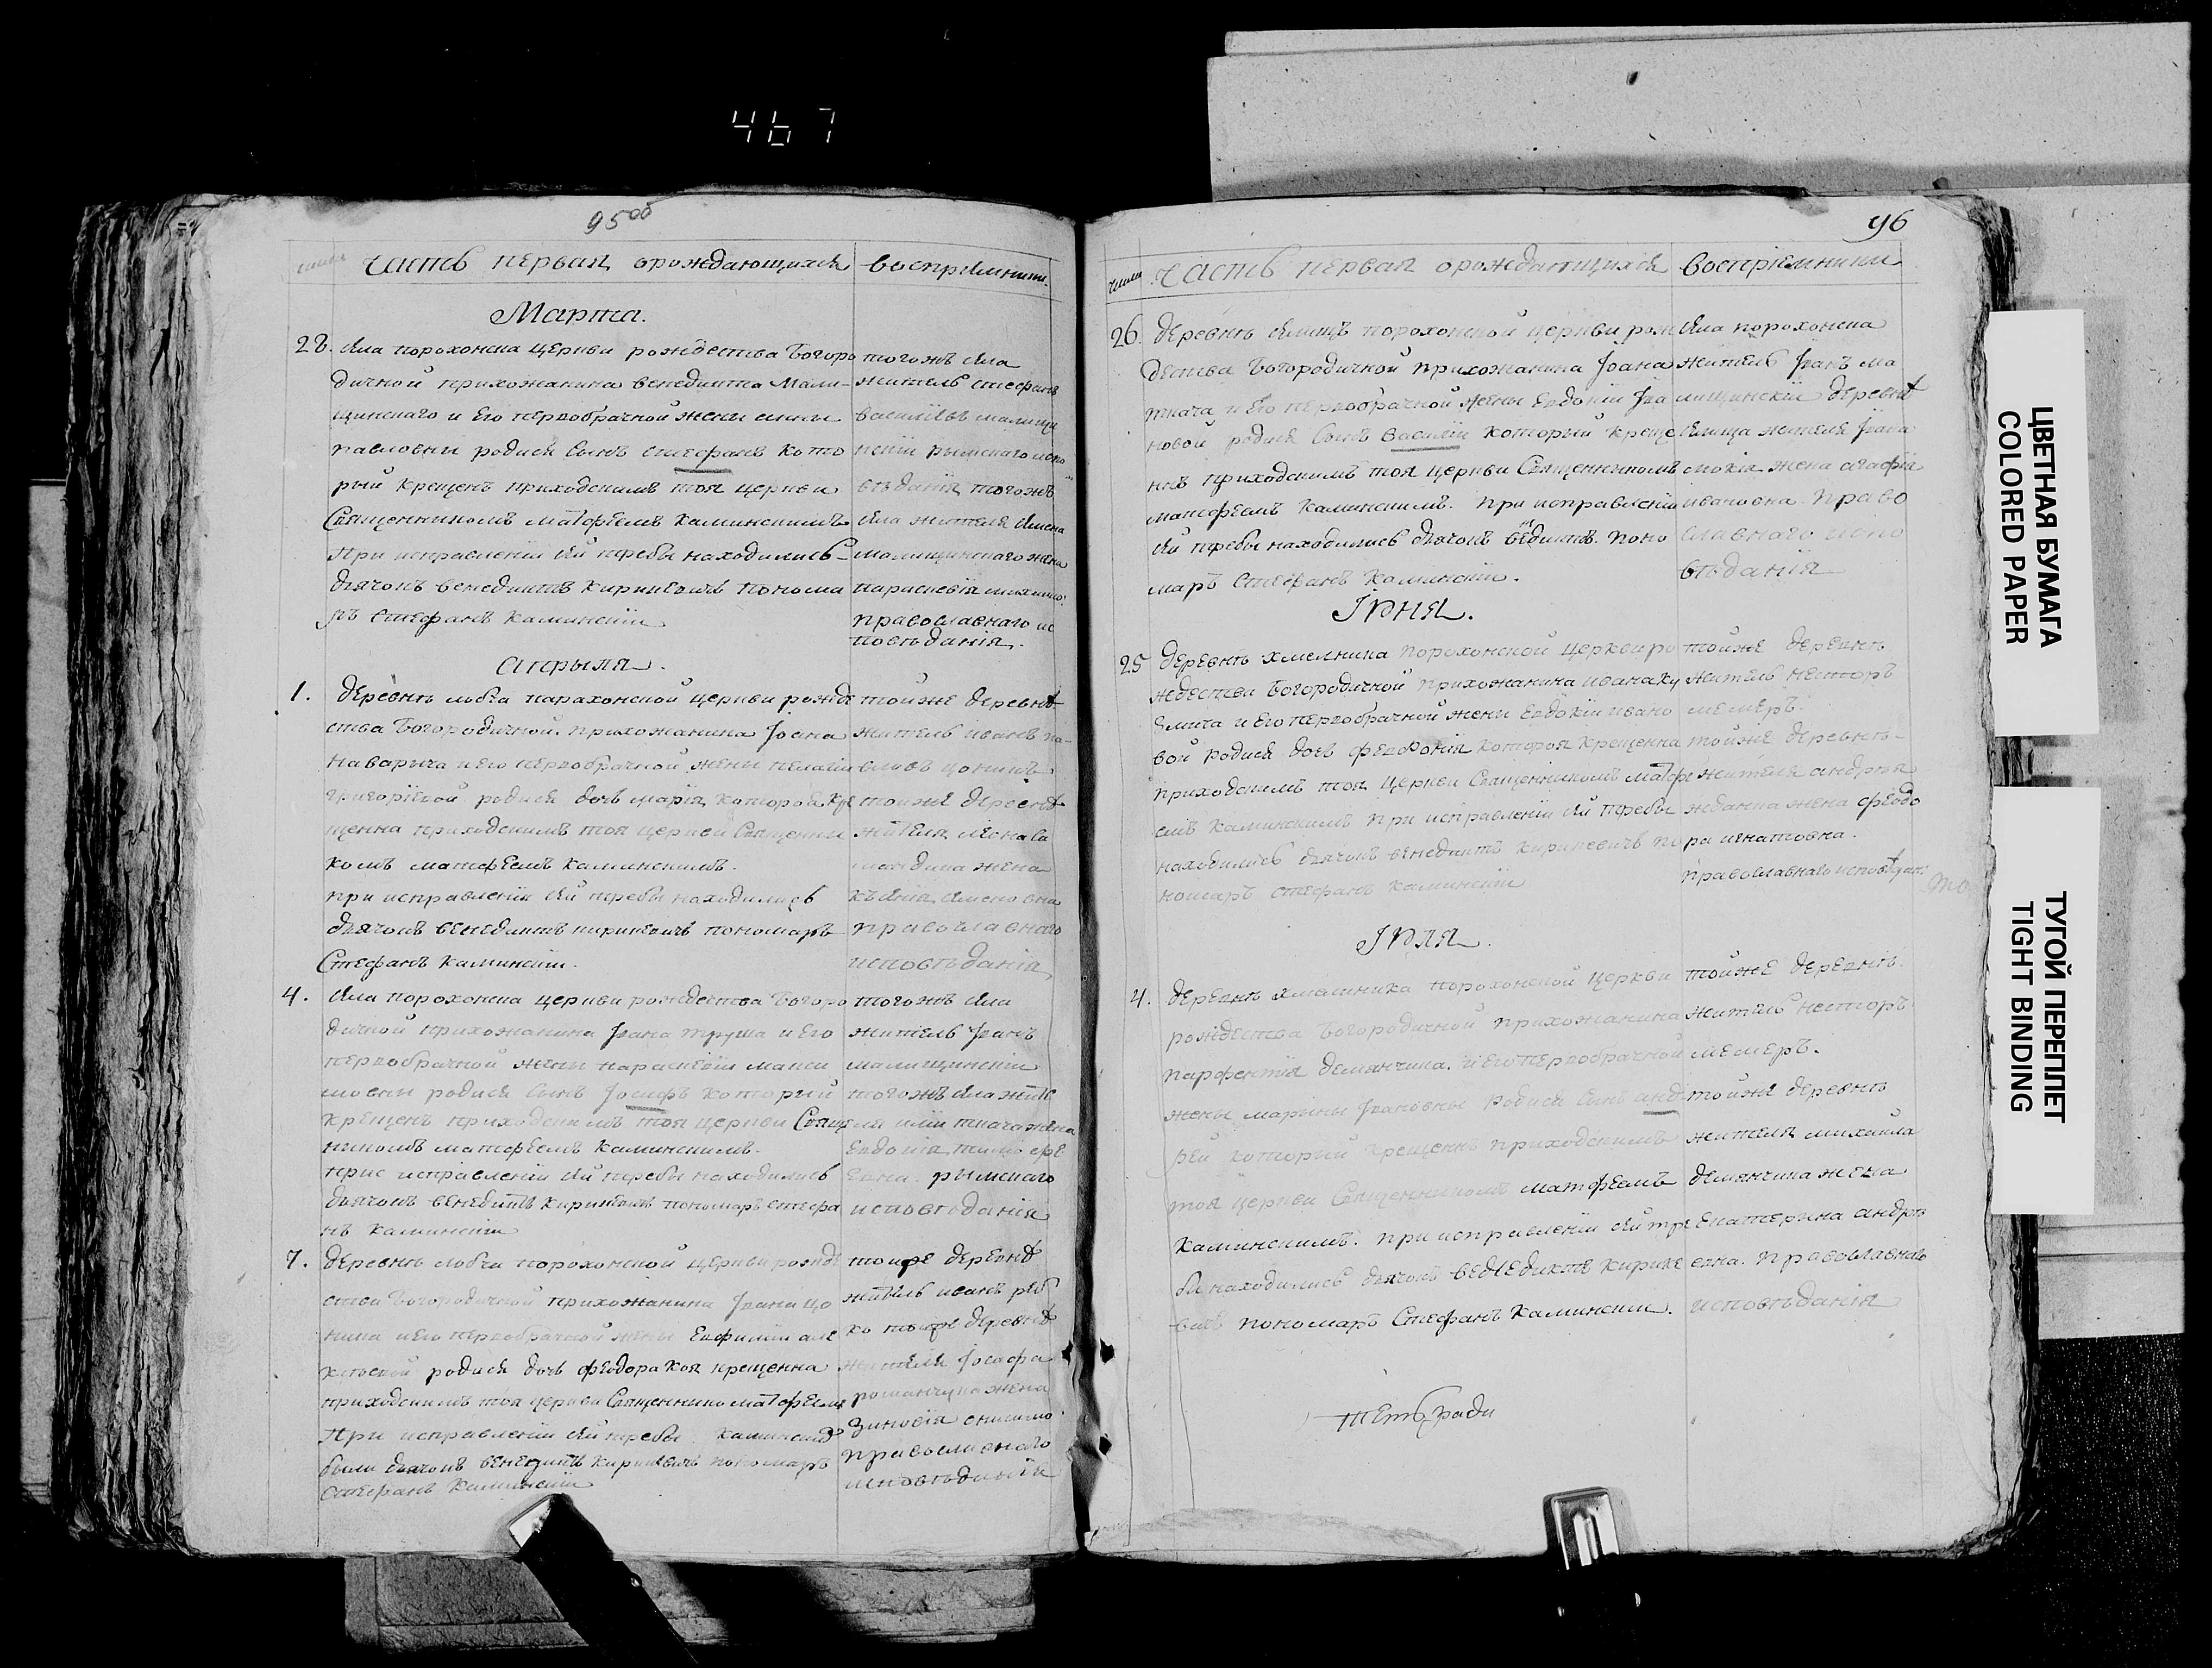 467
95об
числа
часть первая орождающихся
воспріемники.
Марта.
28. села порохонска церкви рождества богоро
дичной прихожанина венедикта Мали-
щинскаго и его первобрачной жени анни
павловни родися сынъ стефанъ кото
рый крещенъ приходскимъ тоя церкви
Священникомъ матфеемъ каминскимъ
При исправленіи сей требы находились
дьячокъ венедиктъ кириковичъ понома
ръ стефанъ каминскіи
тогожъ села
житель стефанъ
василіевъ малищи
нскіи рымскаго испо
вѣданія тогожъ
села жителя
малищинскаго жена
параскевія
православнаго ис
повѣданія.
Априля.
1. деревнѣ лобча парахонской церкви рожде
ства богородичной. прихожанина Іоана
и его первобрачной жены пелагіи
григоріевой родися дочь марія которая кре
щенна приходскимъ тоя церкви Священни
комъ матфеемъ каминскимъ.
при исправленіи сей требы находились
дьячокъ венедиктъ кириковичъ пономаръ
Стефанъ каминскіи.
тойже деревнѣ
житель иванъ
тойже деревнѣ
жителя
жена
православнаго
исповѣданія
4. села порохонска церкви рождества богоро
дичной прихожанина Іоана труша и его
первобрачной жены параскевіи макси
мовни родися сынъ Іосифъ который
крещенъ приходскимъ тоя церкви Свящ
никомъ матфеемъ каминскимъ.
при исправленіи сей требы находились
дьячокъ венедиктъ кириковичъ пономаръ стефа
нъ каминскіи
тогожъ села
житель Іоанъ
малищинскіи
тогожъ села жите
ля иліи ткача жена
Евдокія тимофе
евна. рымскаго
исповѣданія
7. деревнѣ лобча порохонской церкви рожде
ства богородичной прихожанина Іоана цо
нина и его первобрачной жены Евфиміи але
ксѣевой родися дочь феодора коя крещенна
приходскимъ тоя церкви Священнико матфеемъ
При исправленіи сей требы каминскимъ
были дьячокъ венедиктъ кириковичъ пономаръ
стефанъ каминскіи
тойже деревнѣ
житель иванъ
ко тойже деревнѣ
жителя Іосафа
жена
Зиновія
православнаго
исповѣданія
96
числа
часть первая орождающихся
воспріемники
26. деревнѣ селищъ порохонской церкви рож
дества богородичной прихожанина Іоана
ткача и его первобрачной жены Евдокіи Іва
новой родися сынъ василіи который креще
ннъ приходскимъ тоя церкви Священникомъ
матфеемъ каминскимъ. при исправленіи
сей требы находились дьячокъ поно
маръ Стефанъ каминскіи.
села порохонска
житель Іоанъ ма
лищинскіи деревнѣ
селища жителя Іоана
жена агафія
ивановна право
славнаго испо
вѣданія
Іюня.
25 деревнѣ хмелника порохонской церкви ро
ждества богородичной прихожанина ивана ку
змича и его первобрачной жени евдокіи ивано
вой родися дочь которая крещенна
приходскимъ тоя церкви Священникомъ матфе
емъ каминскимъ при исправленіи сей требы
находились дьячокъ венедиктъ кириковичъ по
номаръ стефанъ каминскіи
тойже деревнѣ
житель несторъ
мемеръ.
тойже деревнѣ
жителя андрея
жена феодо
ра игнатовна.
православнаго
Іюля.
4. деревнѣ хмелника порохонской церкви
рождества богородичной прихожанина
парфентія демянчика. и его первобрачной
жены марыны Івановны родися сынъ анд
рей который крещеннъ приходскимъ
тоя церкви Священникомъ матфеемъ
каминскимъ. при исправленіи сей тре
бы находились дьячокъ ведедиктъ кирике
вичъ пономаръ Стефанъ каминскіи.
тойже деревнѣ
житель несторъ
мемеръ.
тойже деревнѣ
жителя михаила
демянчика жена
Екатерина андре
евна. православнаго
исповѣданія
ЦВЕТНАЯ БУМАГА
COLORED PAPER
ТУГОЙ ПЕРЕПЛЕТ
TIGHT BINDING